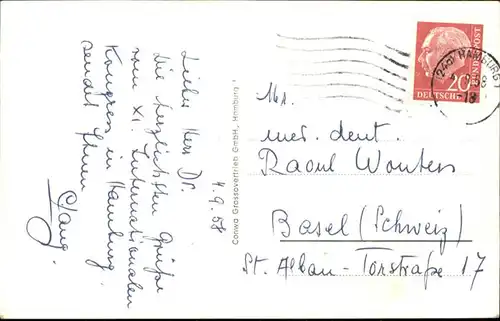 4.9.58
Lieber Herr Dr.
Die herzlichsten Grüße
vom XI. Internationalen
Kongress in Hamburg
sendet Ihnen
Conwa Grossovertrieb GmbH., Hamburg 1
DEUTSCHE
BUNDESPOST
20
HAMBURG
med. dent.
Raoul Wouters
Basel (Schweiz)
St. Alban-Torstraße 17